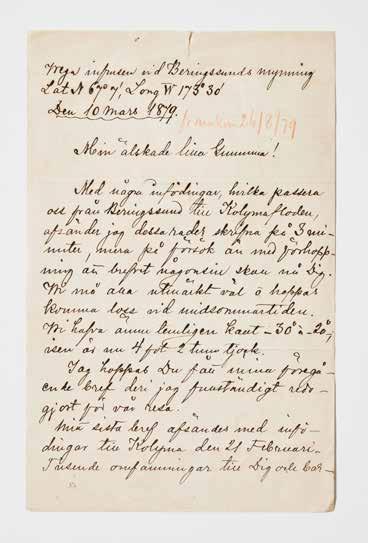 Vega infrusen vid Beringssunds mynning
Lat N 67° 7', Long W 173° 30'
Den 10 Mars 1879.
framkom 24/8/79
Min älskade lilla Gumma!
Med några infödingar, hvilka passera
oss från Beringssund till Kolymafloden,
afsänder jag dessa rader skrifna på 3 mi-
nuter, mera på försök än med förhopp-
ning att brefvet någonsin skall nå Dig.
Vi må alla utmärkt väl o hoppas
komma loss vid midsommartiden.
Vi hafva ännu temligen kallt – 30° à – 20°,
isen är nu 4 fot 2 tum tjock.
Jag hoppas Du får mina föregå-
ende bref deri jag fullständigt redo-
gjort för vår resa.
Mitt sista bref afsändes med infö-
dingar till Kolyma den 21 Februari.
Tusende omfamningar till Dig och Car-